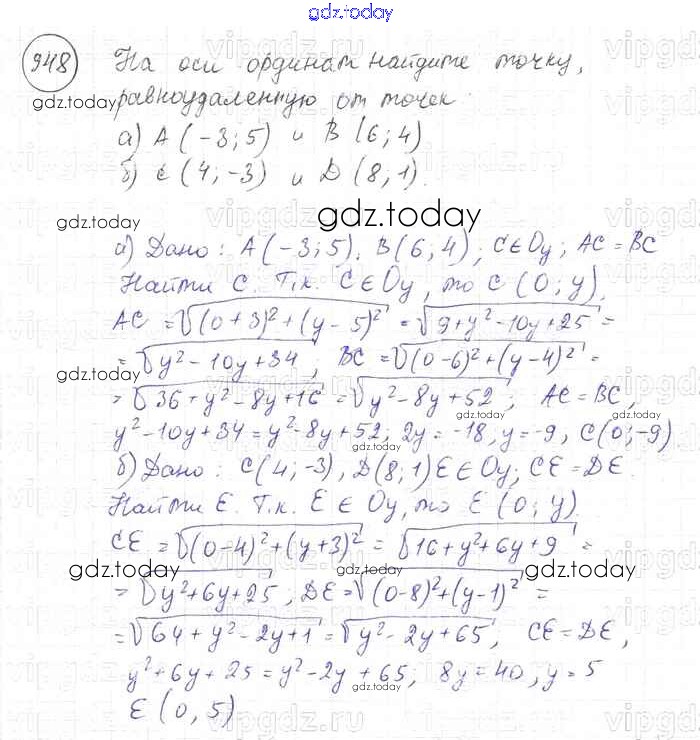 gdz.today
948 На оси ординат найдите точку,
gdz.today
равноудаленную от точек
а) A (-3; 5) и B (6; 4)
б) C (4; -3) и D (8; 1).
gdz.today
gdz.today
а) Дано: A (-3; 5), B (6; 4), C∈Oy; AC = BC
Найти C. Т.к. C∈Oy, то C (0; y),
AC = √((0+3)²+(y-5)²) = √(9+y²-10y+25) =
= √(y²-10y+34); BC = √((0-6)²+(y-4)²) =
gdz.today
= √(36+y²-8y+16) = √(y²-8y+52); AC = BC,
gdz.today
y²-10y+34 = y²-8y+52; 2y = -18, y = -9, C(0; -9)
б) Дано: C(4; -3), D(8; 1) E∈Oy; CE = DE.
gdz.today
Найти E. Т.к. E∈Oy, то E (0; y).
CE = √((0-4)²+(y+3)²) = √(16+y²+6y+9) =
gdz.today
gdz.today
= √(y²+6y+25); DE = √((0-8)²+(y-1)²) =
= √(64+y²-2y+1) = √(y²-2y+65), CE = DE,
gdz.today
y²+6y+25 = y²-2y+65; 8y = 40, y = 5
gdz.today
E (0, 5)